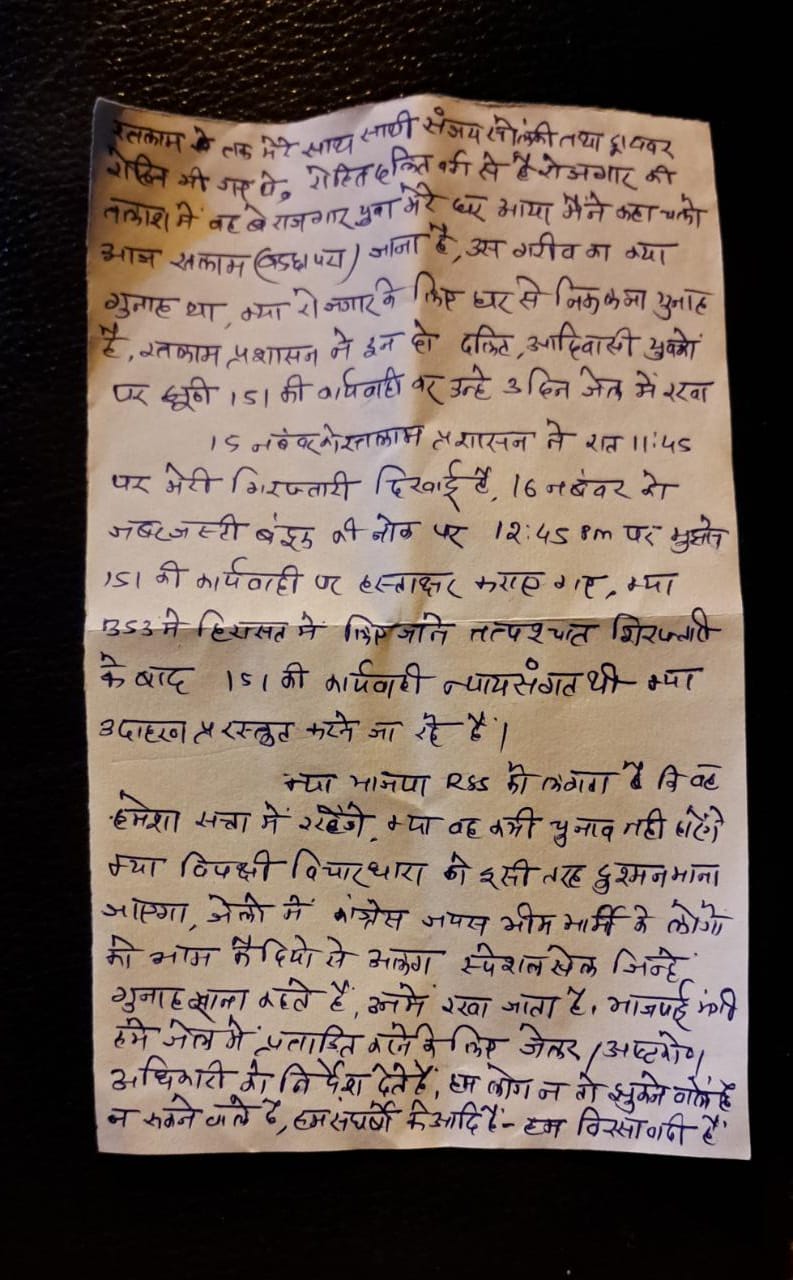 रतलाम से तक मेरे साथ साथी संजय सोलंकी तथा ड्रायवर
रोहित भी गए थे, रोहित दलित वर्ग से है रोजगार की
तलाश में वह बेराजगार युवा मेरे घर आया मैने कहा चलो
आज सलाम जाना है, उस गरीब का क्या
गुनाह था, क्या रोजगार के लिए घर से निकलना गुनाह
है, रतलाम प्रशासन ने इन दो दलित, आदिवासी युवको
पर झूठी 151 की कार्यवाही कर उन्हे 3 दिन जेल में रखा
15 नबंवर को रतलाम प्रशासन ने रात 11:45
पर मेरी गिरफ्तारी दिखाई है, 16 नबंवर को
जबरजस्ती बंदूक की नोक पर 12:45 Pm पर मुझसे
151 की कार्यवाही पर हस्ताक्षर कराए गए, क्या
353 मे हिरासत मे लिए जाने तत्पश्चात गिरफ्तारी
के बाद 151 की कार्यवाही न्यायसंगत थी क्या
उदाहरण प्ररस्तुत करने जा रहे है।
क्या भाजपा RSS को लगता है कि वह
हमेशा सत्ता में रहेंगे, क्या वह कभी चुनाव नही हारेंगे
क्या विपक्षी विचारधारा को इसी तरह दुश्मन माना
जाएगा, जेलो में कांग्रेस जयस भीम आर्मी के लोगो
को आम कैदियो से अलग स्पेशल सेल जिन्हें
गुनाह खाना कहते हैं, उनमें रखा जाता है, भाजपाई मंत्री
हमे जेल में प्रताडित करने के लिए जेलर /
अधिकारी को निर्देश देते हैं, हम लोग न तो झुकने वाले है
न रुकने वाले है, हम संघर्षो के आदि हैं - हम बिरसावादी हैं